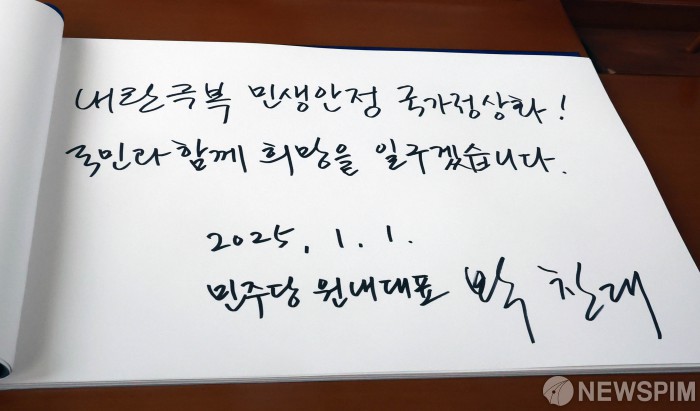 내란극복 민생안정 국가정상화!
국민과 함께 희망을 일구겠습니다.
2025. 1. 1.
민주당 원내대표 박찬대
NEWSPIM